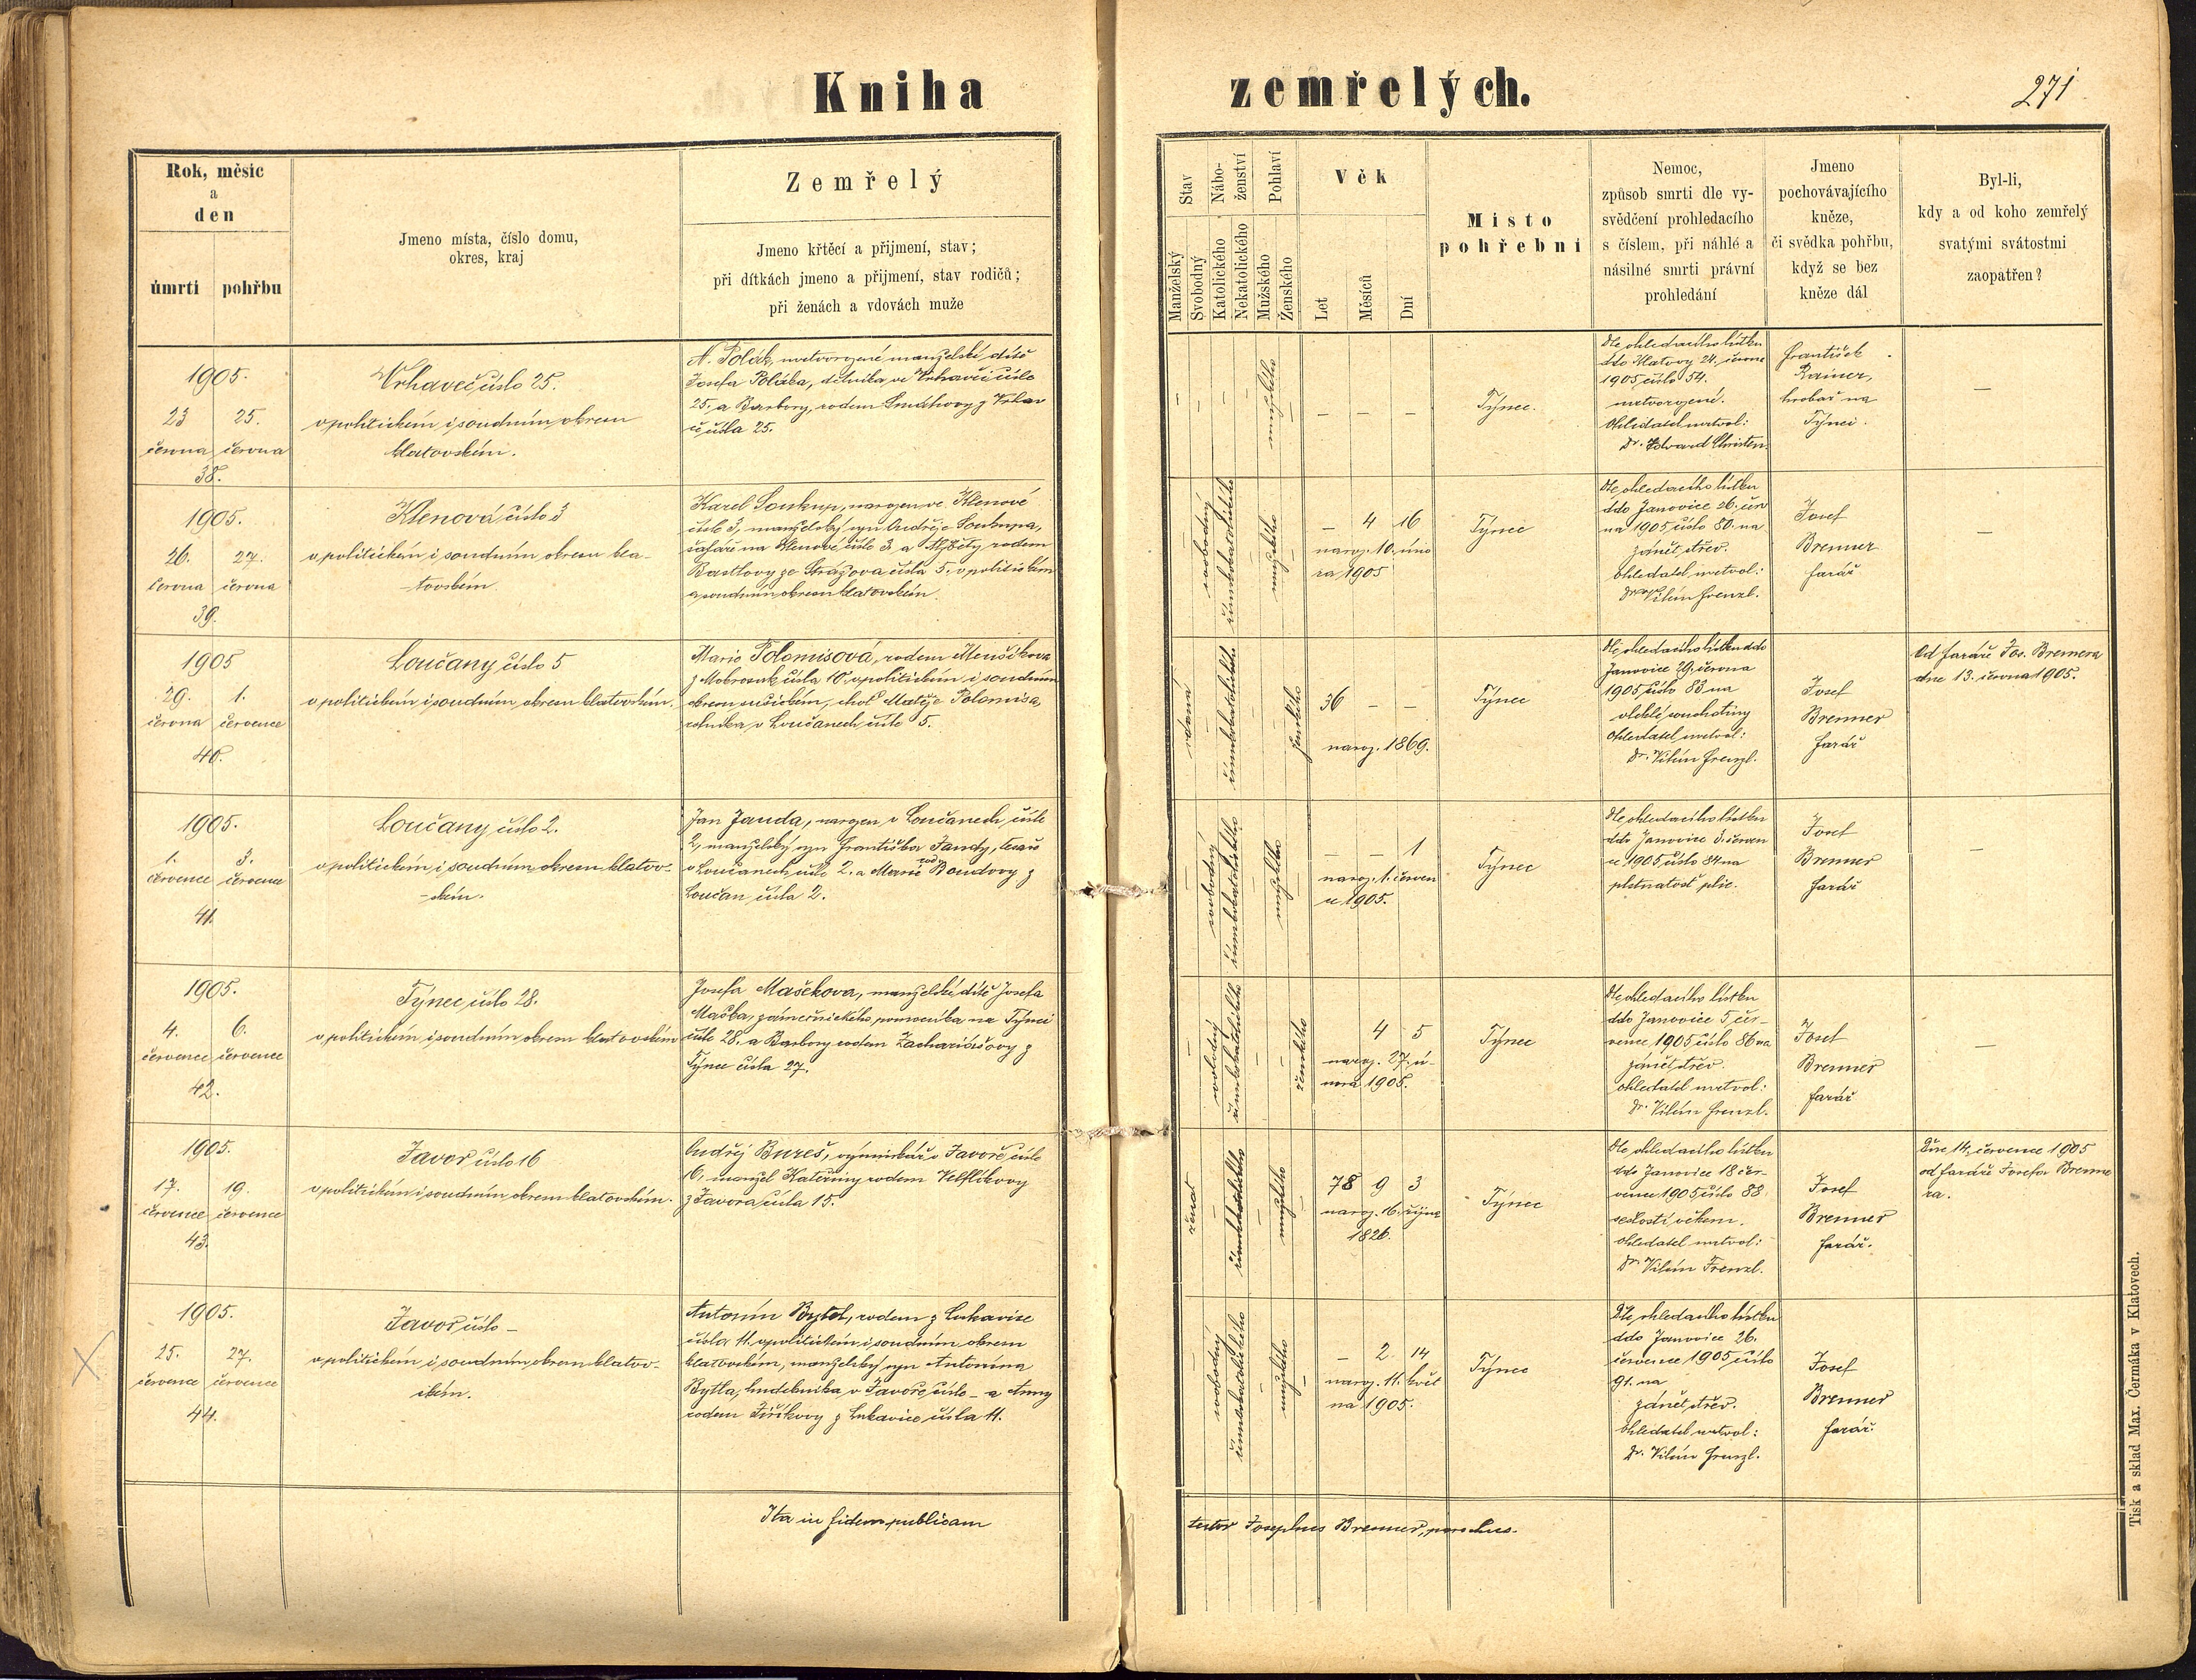 Kniha zemřelých.
271
Rok, měsíc
a
den
úmrtí pohřbu
Jmeno místa, číslo domu,
okres, kraj
Zemřelý
Jmeno křtěcí a příjmení, stav;
při dítkách jmeno a příjmení, stav rodičů;
při ženách a vdovách muže
Stav
Manželský
Svobodný
Nábo-
ženství
Katolického
Nekatolického
Pohlaví
Mužského
Ženského
Věk
Let
Měsíců
Dní
Místo
pohřební
Nemoc,
způsob smrti dle vy-
svědčení prohledacího
s číslem, při náhlé a
násilné smrti právní
prohledání
Jmeno
pochovávajícího
kněze,
či svědka pohřbu,
když se bez
kněze dál
Byl-li,
kdy a od koho zemřelý
svatými svátostmi
zaopatřen?
1905.
23 25.
června června
38.
Vrhaveč číslo 25.
v politickém i soudním okresu
klatovském.
N. Polák, mrtvorozené manželské dítě
Josefa Poláka, dělníka ve Vrhavči číslo
25. a Barbory, rodem z Vrhav
če čísla 25.
mužského
– – –
Týnec.
Dle ohledacího lístku
ddo Klatovy 24. června
1905 číslo 54.
mrtvorozené.
Ohledatel mrtvol:
Dr. Edvard Christen.
František
Rainer,
hrobař na
Týnci.
–
1905.
26. 27.
června června
39.
Klenová číslo 3
v politickém i soudním okresu kla-
-tovském
Karel Soukup, narozen ve Klenové
čísle 3, manželský syn Ondřeje Soukupa,
šafáře na Klenové čísle 3. a Alžběty rodem
Bastlovy ze Strážova čísla 5. v politickém
a soudním okresu klatovském.
svobodný
římskokatolického
mužského
– 4 16
naroz. 10. úno
ra 1905
Týnec
Dle ohledacího lístku
ddo Janovice 26. čer
na 1905 číslo 80. na
zánět střev.
ohledatel mrtvol:
Dr. Vilém Frenzl.
Josef
Brenner
farář
–
1905
29. 1.
června července
40.
Loučany číslo 5
v politickém i soudním okresu klatovském.
Marie Polomisová, rodem Menšíkova
z Mokrosuk čísla 10. v politickém i soudním
okresu sušickém, choť Matěje Polomisa,
rolníka v Loučanech čísle 5.
vdaná
římskokatolického
ženského
36 – –
naroz. 1869.
Týnec
Dle ohledacího lístku ddo
Janovice 29. června
1905 číslo 83 na
vleklé souchotiny
Ohledatel mrtvol:
Dr. Vilém Frenzl.
Josef
Brenner
farář
Od faráře Jos. Brennera
dne 13. června 1905.
1905.
1. 3.
července července
41.
Loučany číslo 2.
v politickém i soudním okresu klatov-
-ském.
Jan Janda, narozen v Loučanech čísle
2, manželský syn Františka Jandy, tesaře
v Loučanech čísle 2. a Marie rod Boudovy z
Loučan čísla 2.
svobodný
římskokatolického
mužského
– – 1
naroz. 1. červen
ce 1905.
Týnec
Dle ohledacího lístku
ddo Janovice 3. červen
ce 1905 číslo 84 na
plstnatost plic.
Josef
Brenner
farář
–
1905.
4. 6.
července července
42.
Týnec číslo 28.
v politickém i soudním okresu klatovském
Josefa Maškova, manželské dítě Josefa
Maška, zámečnického pomocníka na Týnci
čísle 28. a Barbory rodem Zachariášovy z
Týnce čísla 27.
svobodný
římskokatolického
ženského
4 5
naroz. 27. ú-
nora 1905.
Týnec
Dle ohledacího lístku
ddo Janovice 5 čer-
vence 1905 číslo 86 na
zánět střev.
ohledatel mrtvol:
Dr. Vilém Frenzl.
Josef
Brenner
farář
–
1905.
17. 19.
července července
43.
Javor číslo 16
v politickém i soudním okresu klatovském.
Ondřej Bureš, výminkář v Javoře čísle
16, manžel Kateřiny rodem Velflíkovy
z Javora čísla 15.
ženat
římskokatolického
mužského
78 9 3
naroz. 16. října
1826.
Týnec
Dle ohledacího lístku
ddo Janovice 18 čer-
vence 1905 číslo 88
sešlostí věkem.
ohledatel mrtvol:
Dr. Vilém Frenzl.
Josef
Brenner
farář.
Dne 14. července 1905
od faráře Josefa Brenne
ra.
1905.
25. 27.
července července
44.
Javor číslo –
v politickém i soudním okresu klatov-
ském.
Antonín Bytel, rodem z Lukavice
čísla 11. v politickém i soudním okresu
klatovském, manželský syn Antonína
Bytla, hudebníka v Javoře čísle – a Anny
rodem Jiříkovy z Lukavice čísla 11.
svobodný
římskokatolického
mužského
– 2 14
naroz. 11. květ
na 1905.
Týnec
Dle ohledacího lístku
ddo Janovice 26.
července 1905 číslo
91. na
zánět střev.
Ohledatel mrtvol:
Dr. Vilém Frenzl.
Josef
Brenner
farář.
Ita in fidem publicam
testor Josephus Brenner, parochus.
Tisk a sklad Max. Čermáka v Klatovech.